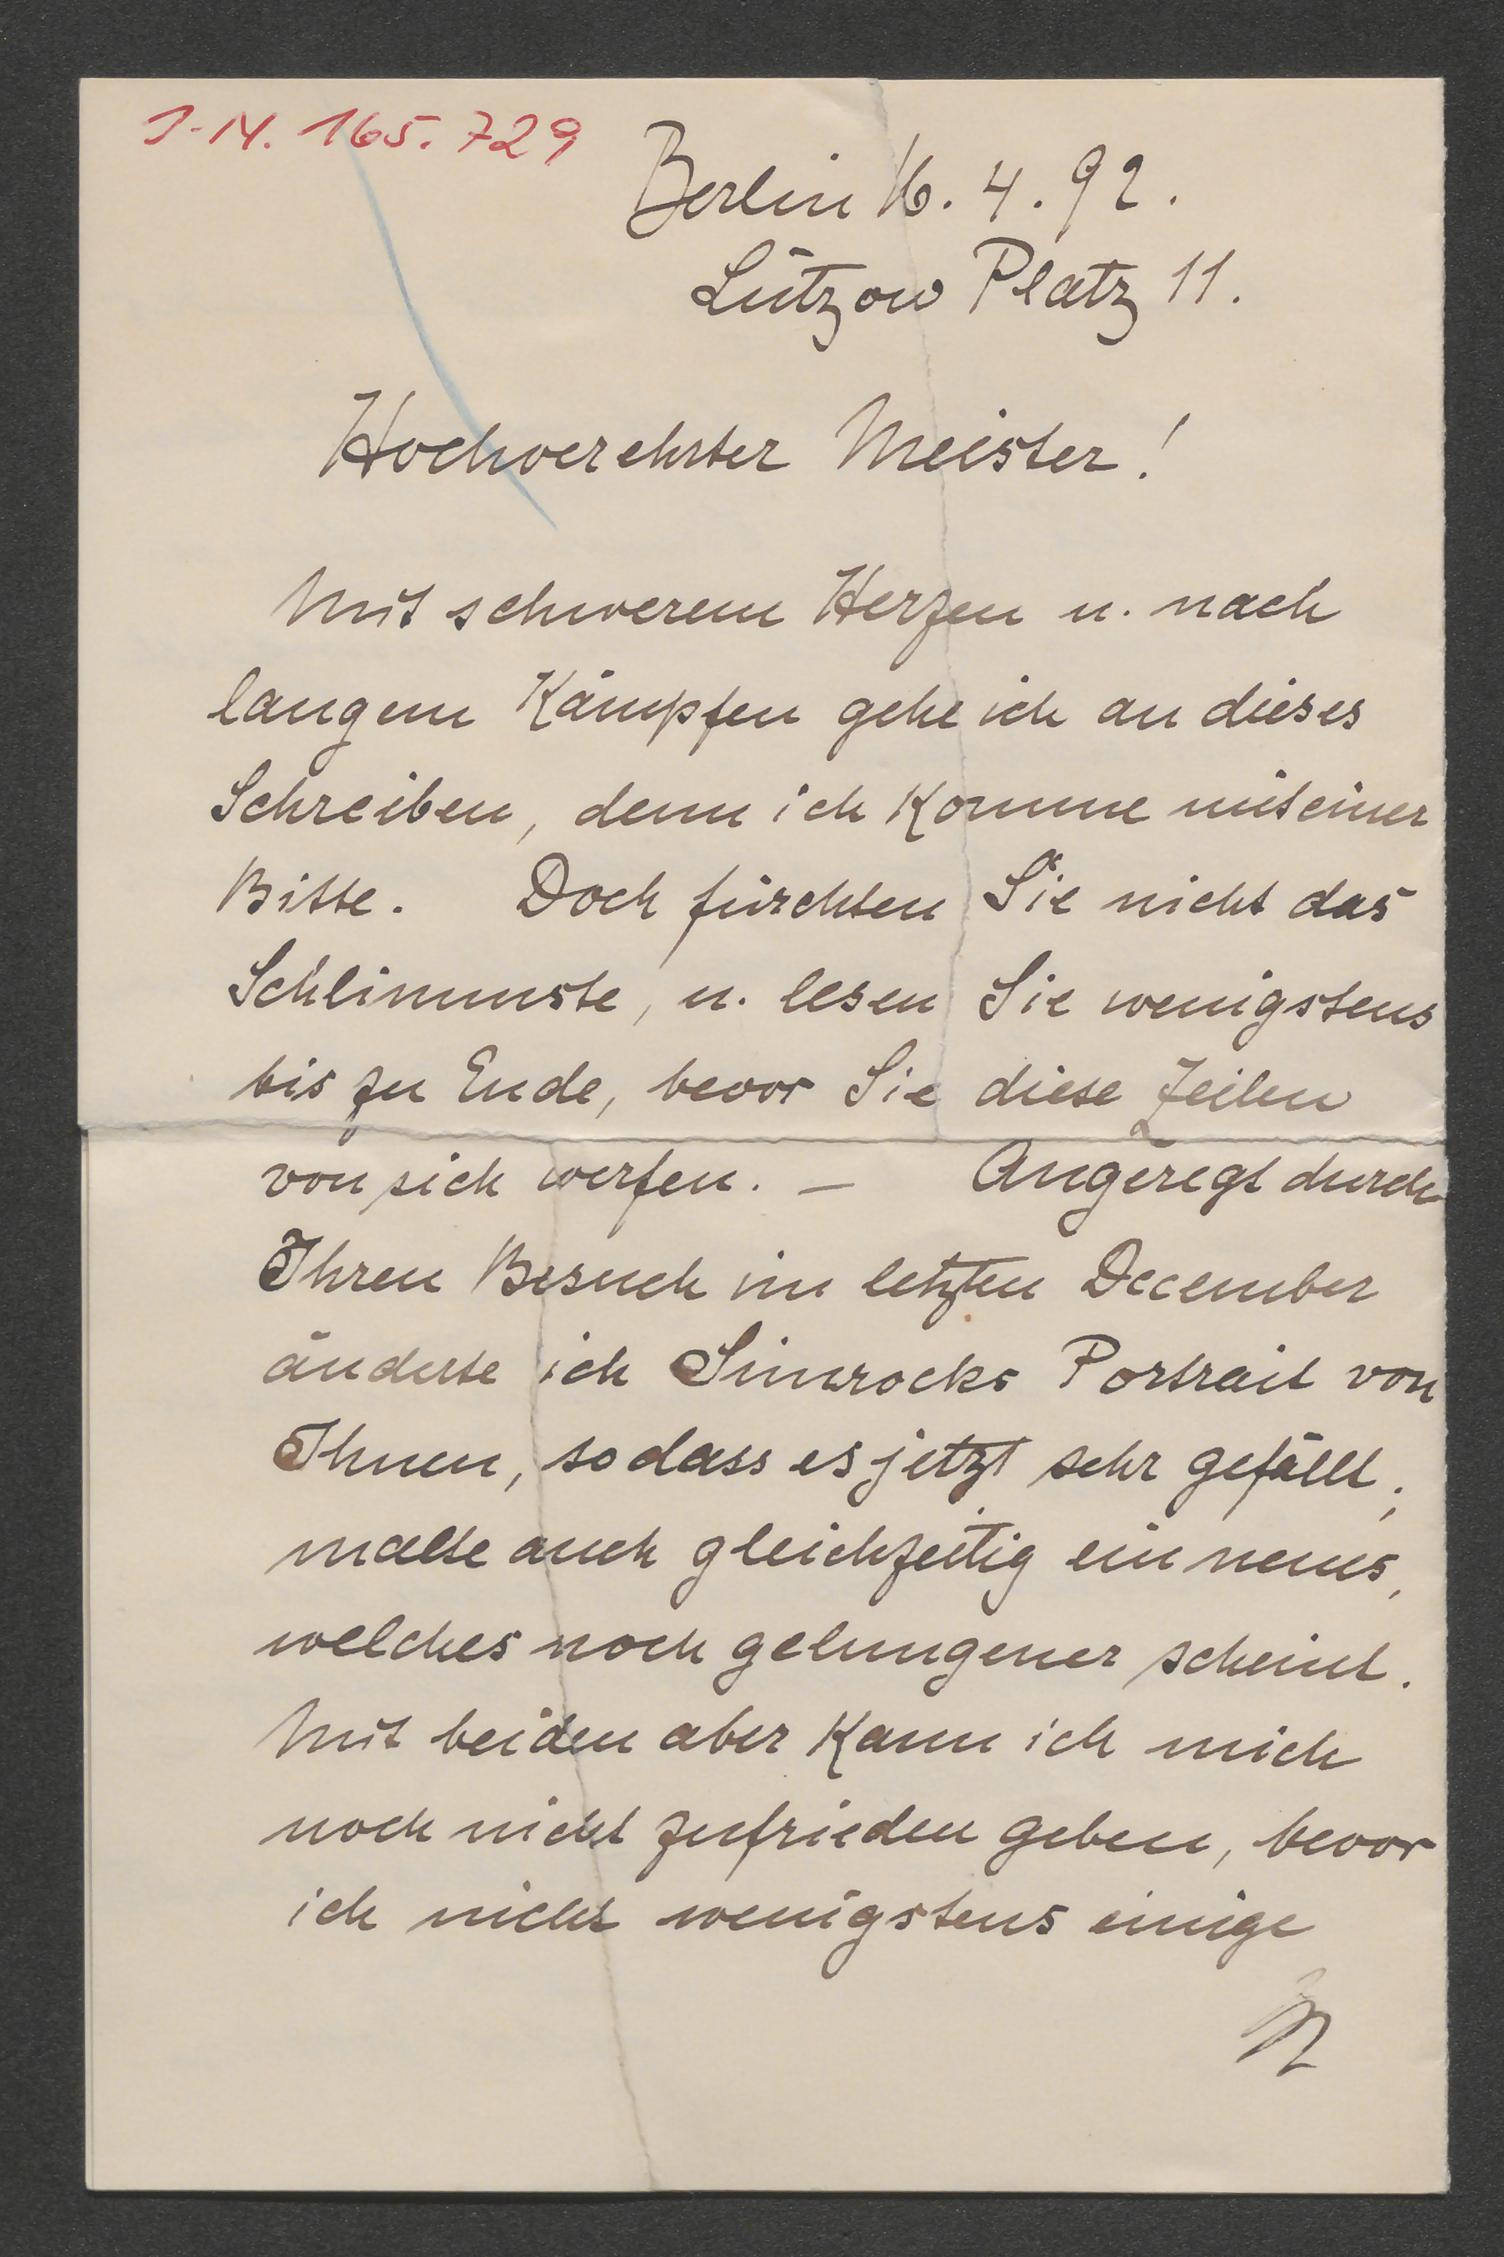 J.N. 165.729
Berlin 16. 4. 92.
Lützow Platz 11.
Hochverehrter Meister!
Mit schwerem Herzen u. nach
langem Kämpfen gehe ich an dieses
Schreiben, denn ich komme mit einer
Bitte. Doch fürchten Sie nicht das
Schlimmste, u. lesen Sie wenigstens
bis zu Ende, bevor Sie diese Zeilen
von sich werfen. – Angeregt durch
Ihren Besuch im letzten December
änderte ich Simrocks Portrait von
Ihnen, sodass es jetzt sehr gefällt;
malte auch gleichzeitig ein neues,
welches noch gelungener scheint.
Mit beiden aber kann ich mich
noch nicht zufrieden geben, bevor
ich nicht wenigstens einige